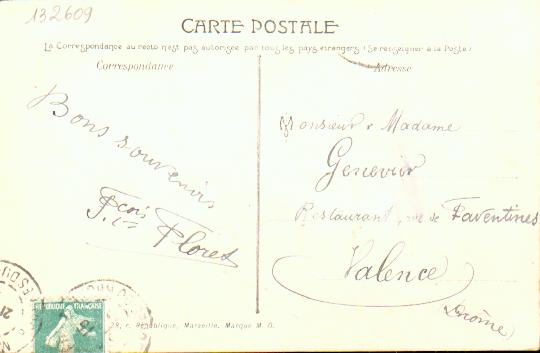 132609
CARTE POSTALE
La Correspondance au recto n'est pas autorisée par tous les pays étrangers (Se renseigner à la Poste)
Correspondance
Adresse
Bons souvenirs
Fçois Floret
Monsieur & Madame
Genevier
Restaurant, rue de Faventines
Valence
(Drôme)
REPUBLIQUE FRANÇAISE
28, r. République, Marseille. Marque M. O.